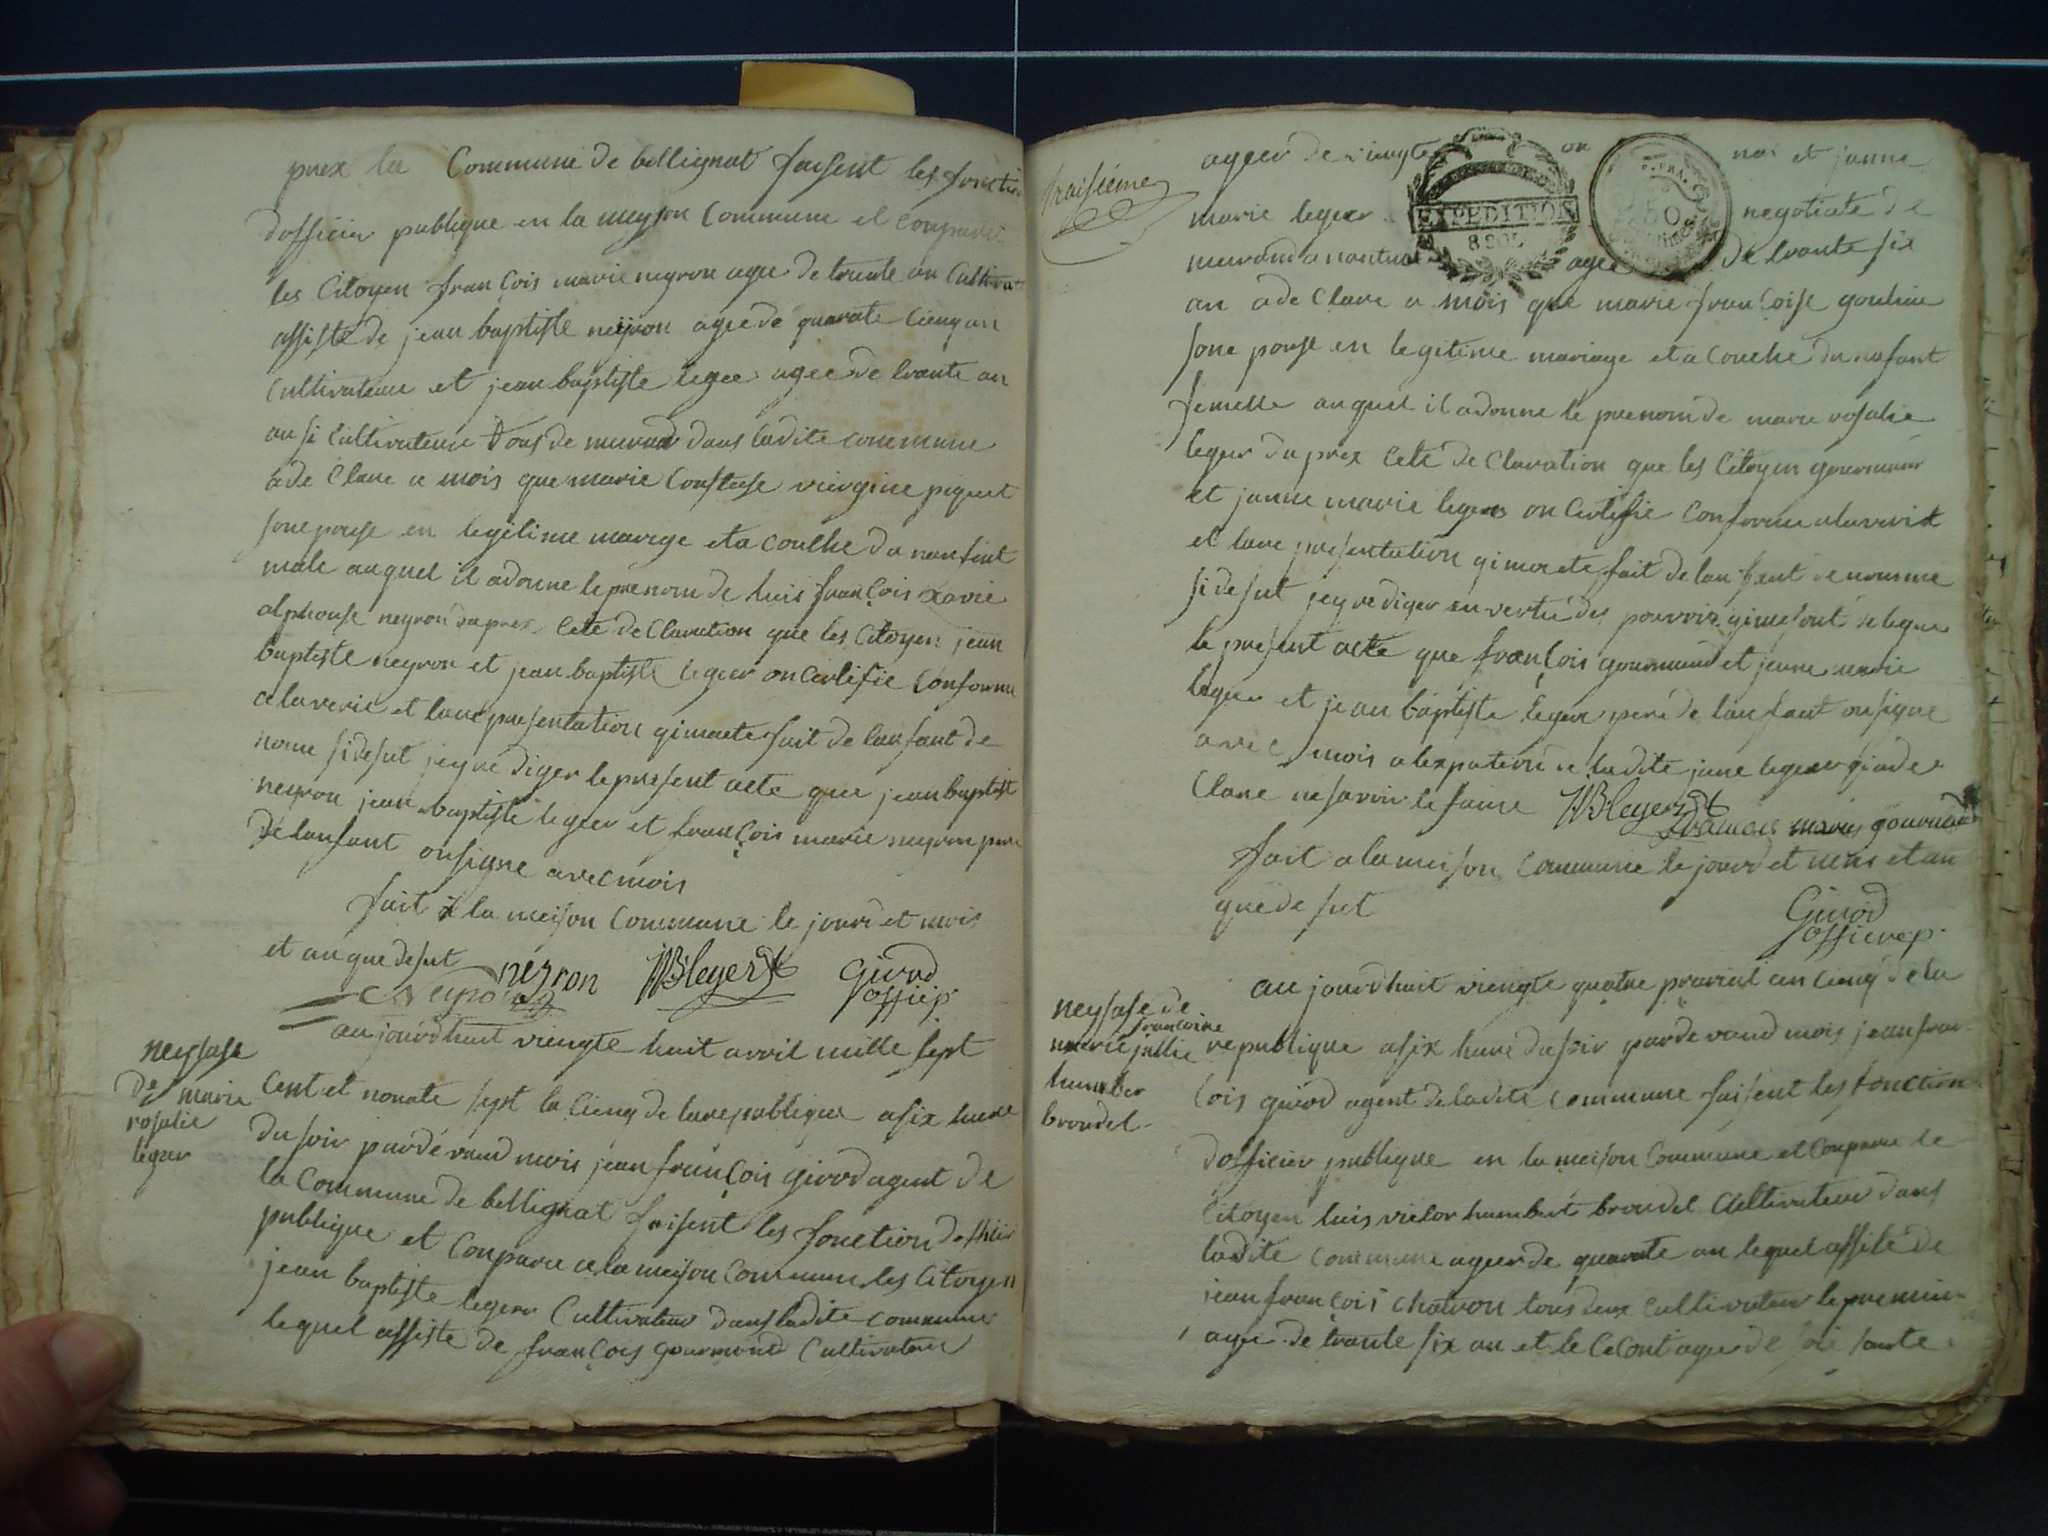 prex la Commune de bellignat faisent les fonction
dofficier publique en la meyson Commune et Conparu
les Citoyen francois marie neyron agee de trente an Cultivat
assiste de jean baptiste neyron agee de quarate cienq an
Cultivateur et jean baptiste leger agee de trante an
ausi Cultivateur tous de dans ladite commune
a de Clare a mois que marie viergine piquet
sone pouse en legitime marege et a Couche du nanfant
male auquel il adonne le prenom de luis francois xavie
alphonse neyron dapres cete de Claration que les Citoyen jean
baptiste neyron et jean baptiste leger on Certifie Conforme
a la verite et la presentation qimaete fait de lanfant de
nome si desut jey re diger le present acte que jean baptist
neyron jean baptiste leger et francois marie neyron pere
de lanfant on signe avec mois
fait a la meison Commune le jourd et mois
et an que desut neyron JB leger Girod
Neyron offi p
neysase
de marie
rosalie
leger
au jourdhuit viengte huit avril mille sept
cent et nonate sept la Cienq de la republique a six hure
du soir par de vand mois jean francois girod agent de
la Commune de bellignat faisent les fonction doffisier
publique et Conparu a la meyson Commun les Citoyen
jean baptiste leger Cultivateur dans ladite commune
lequel assiste de francois gourmond Cultivateur
troisieme
agee de viengte an et janne
marie leger negotiate de
a nantua agee de trante six
an a de Clare a mois que marie francoise
sone pouse en legitime mariage et a Couche du nafant
femelle auquel il adonne le prenom de marie rosalie
leger du prex Cete de Claration que les Citoyen gourmond
et janne marie leger on Certifie Conforme a la verite
et la presentation qimaete fait de lanfant de nomme
si desut jey re diger en vertu des pouvoir qime sont delegue
le present acte que francois gourmand et jeane marie
leger et jean baptiste leger pere de lanfant on signe
avec mois a lexpation de ladite jane leger qi a de
Clare ne savoir le faire JB leger
francois marie gourmand
fait a la meison Commune le jourd et mois et an
que de sut Girod
officier p.
neysase de
francoise
marie jullie
humber
brondel
au jourdhuit viengte quatre prerial an cienq de la
republique a six hure du soir par de vand mois jean fran
cois girod agent de ladite Commune faisent les fonction
dofficier publique en la meison Commune et Conparu le
Citoyen luis victor humbert brondel Cultivateur dans
ladite commune agee de quarate an lequel assite de
jean francois chatron tous deux Cultivateur le premier
agee de trante six an et le Cecont agee de soi sante
EXPEDITION
8 SOLS
50